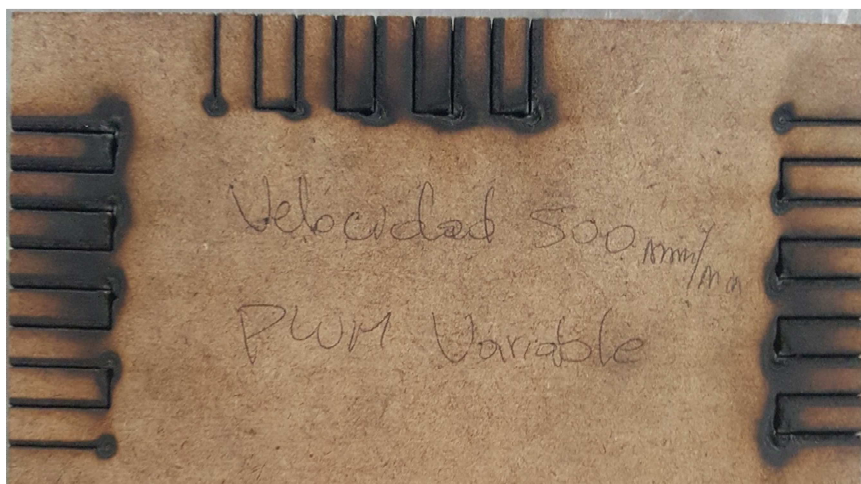 Velocidad 500 mm/min
PWM Variable